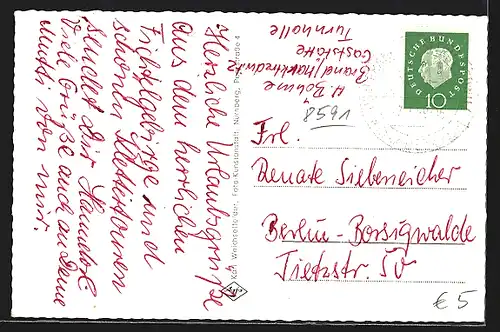 Herzliche Urlaubsgrüße
aus dem herrlichen
Fichtelgebirge und
schönen Klettertouren
sendet Dir Hannelore
Viele Grüße auch an Deine
Mutti von mir.
Karl Weichselfelder, Foto-Kunstanstalt, Nürnberg,
H. Böhme
Brand/Marktredwitz
Gaststätte
Turnhalle
8591
DEUTSCHE BUNDESPOST
10
Frl.
Renate Siebeneicher
Berlin-Borsigwalde
Tietzstr. 50
€ 5